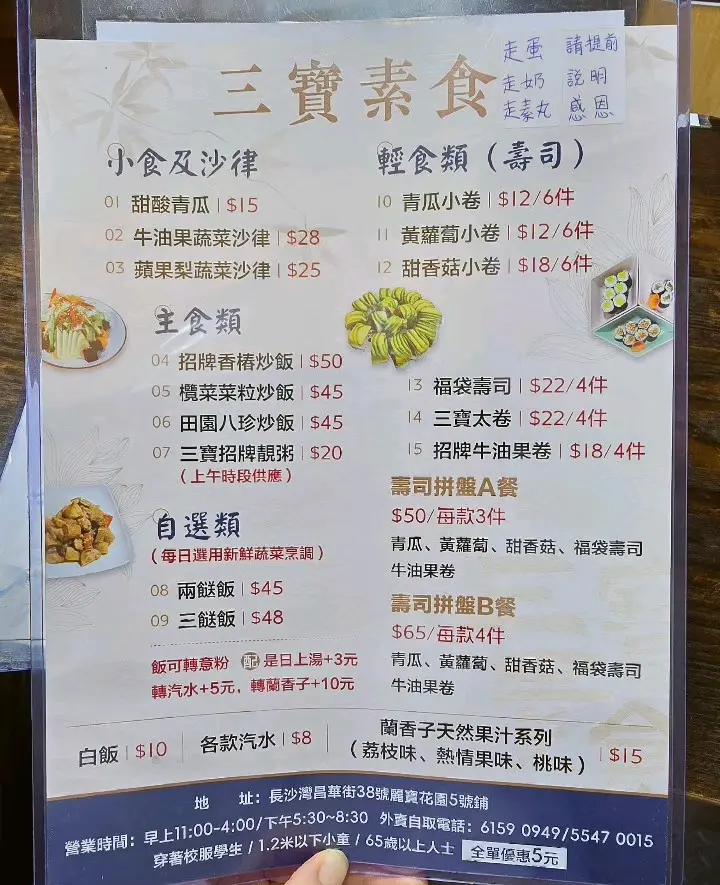 三寶素食
走蛋 請提前
走奶 說明
走素丸 感恩
小食及沙律
01 甜酸青瓜 | $15
02 牛油果蔬菜沙律 | $28
03 蘋果梨蔬菜沙律 | $25
主食類
04 招牌香椿炒飯 | $50
05 欖菜菜粒炒飯 | $45
06 田園八珍炒飯 | $45
07 三寶招牌靚粥 | $20
(上午時段供應)
自選類
(每日選用新鮮蔬菜烹調)
08 兩餸飯 | $45
09 三餸飯 | $48
飯可轉意粉 配 是日上湯+3元
轉汽水+5元, 轉蘭香子+10元
輕食類 (壽司)
10 青瓜小卷 | $12/6件
11 黃蘿蔔小卷 | $12/6件
12 甜香菇小卷 | $18/6件
13 福袋壽司 | $22/4件
14 三寶太卷 | $22/4件
15 招牌牛油果卷 | $18/4件
壽司拼盤A餐
$50/每款3件
青瓜、黃蘿蔔、甜香菇、福袋壽司
牛油果卷
壽司拼盤B餐
$65/每款4件
青瓜、黃蘿蔔、甜香菇、福袋壽司
牛油果卷
白飯 | $10
各款汽水 | $8
蘭香子天然果汁系列
(荔枝味、熱情果味、桃味) | $15
地 址: 長沙灣昌華街38號麗寶花園5號鋪
營業時間: 早上11:00-4:00/下午5:30~8:30 外賣自取電話: 6159 0949/5547 0015
穿著校服學生 / 1.2米以下小童 / 65歲以上人士 全單優惠5元